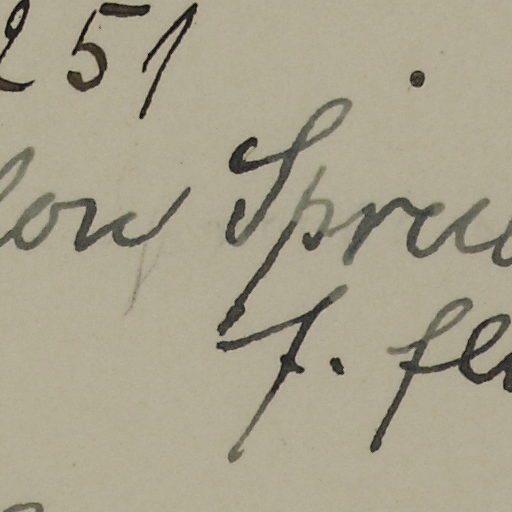 251 .
low Spru
f. fl